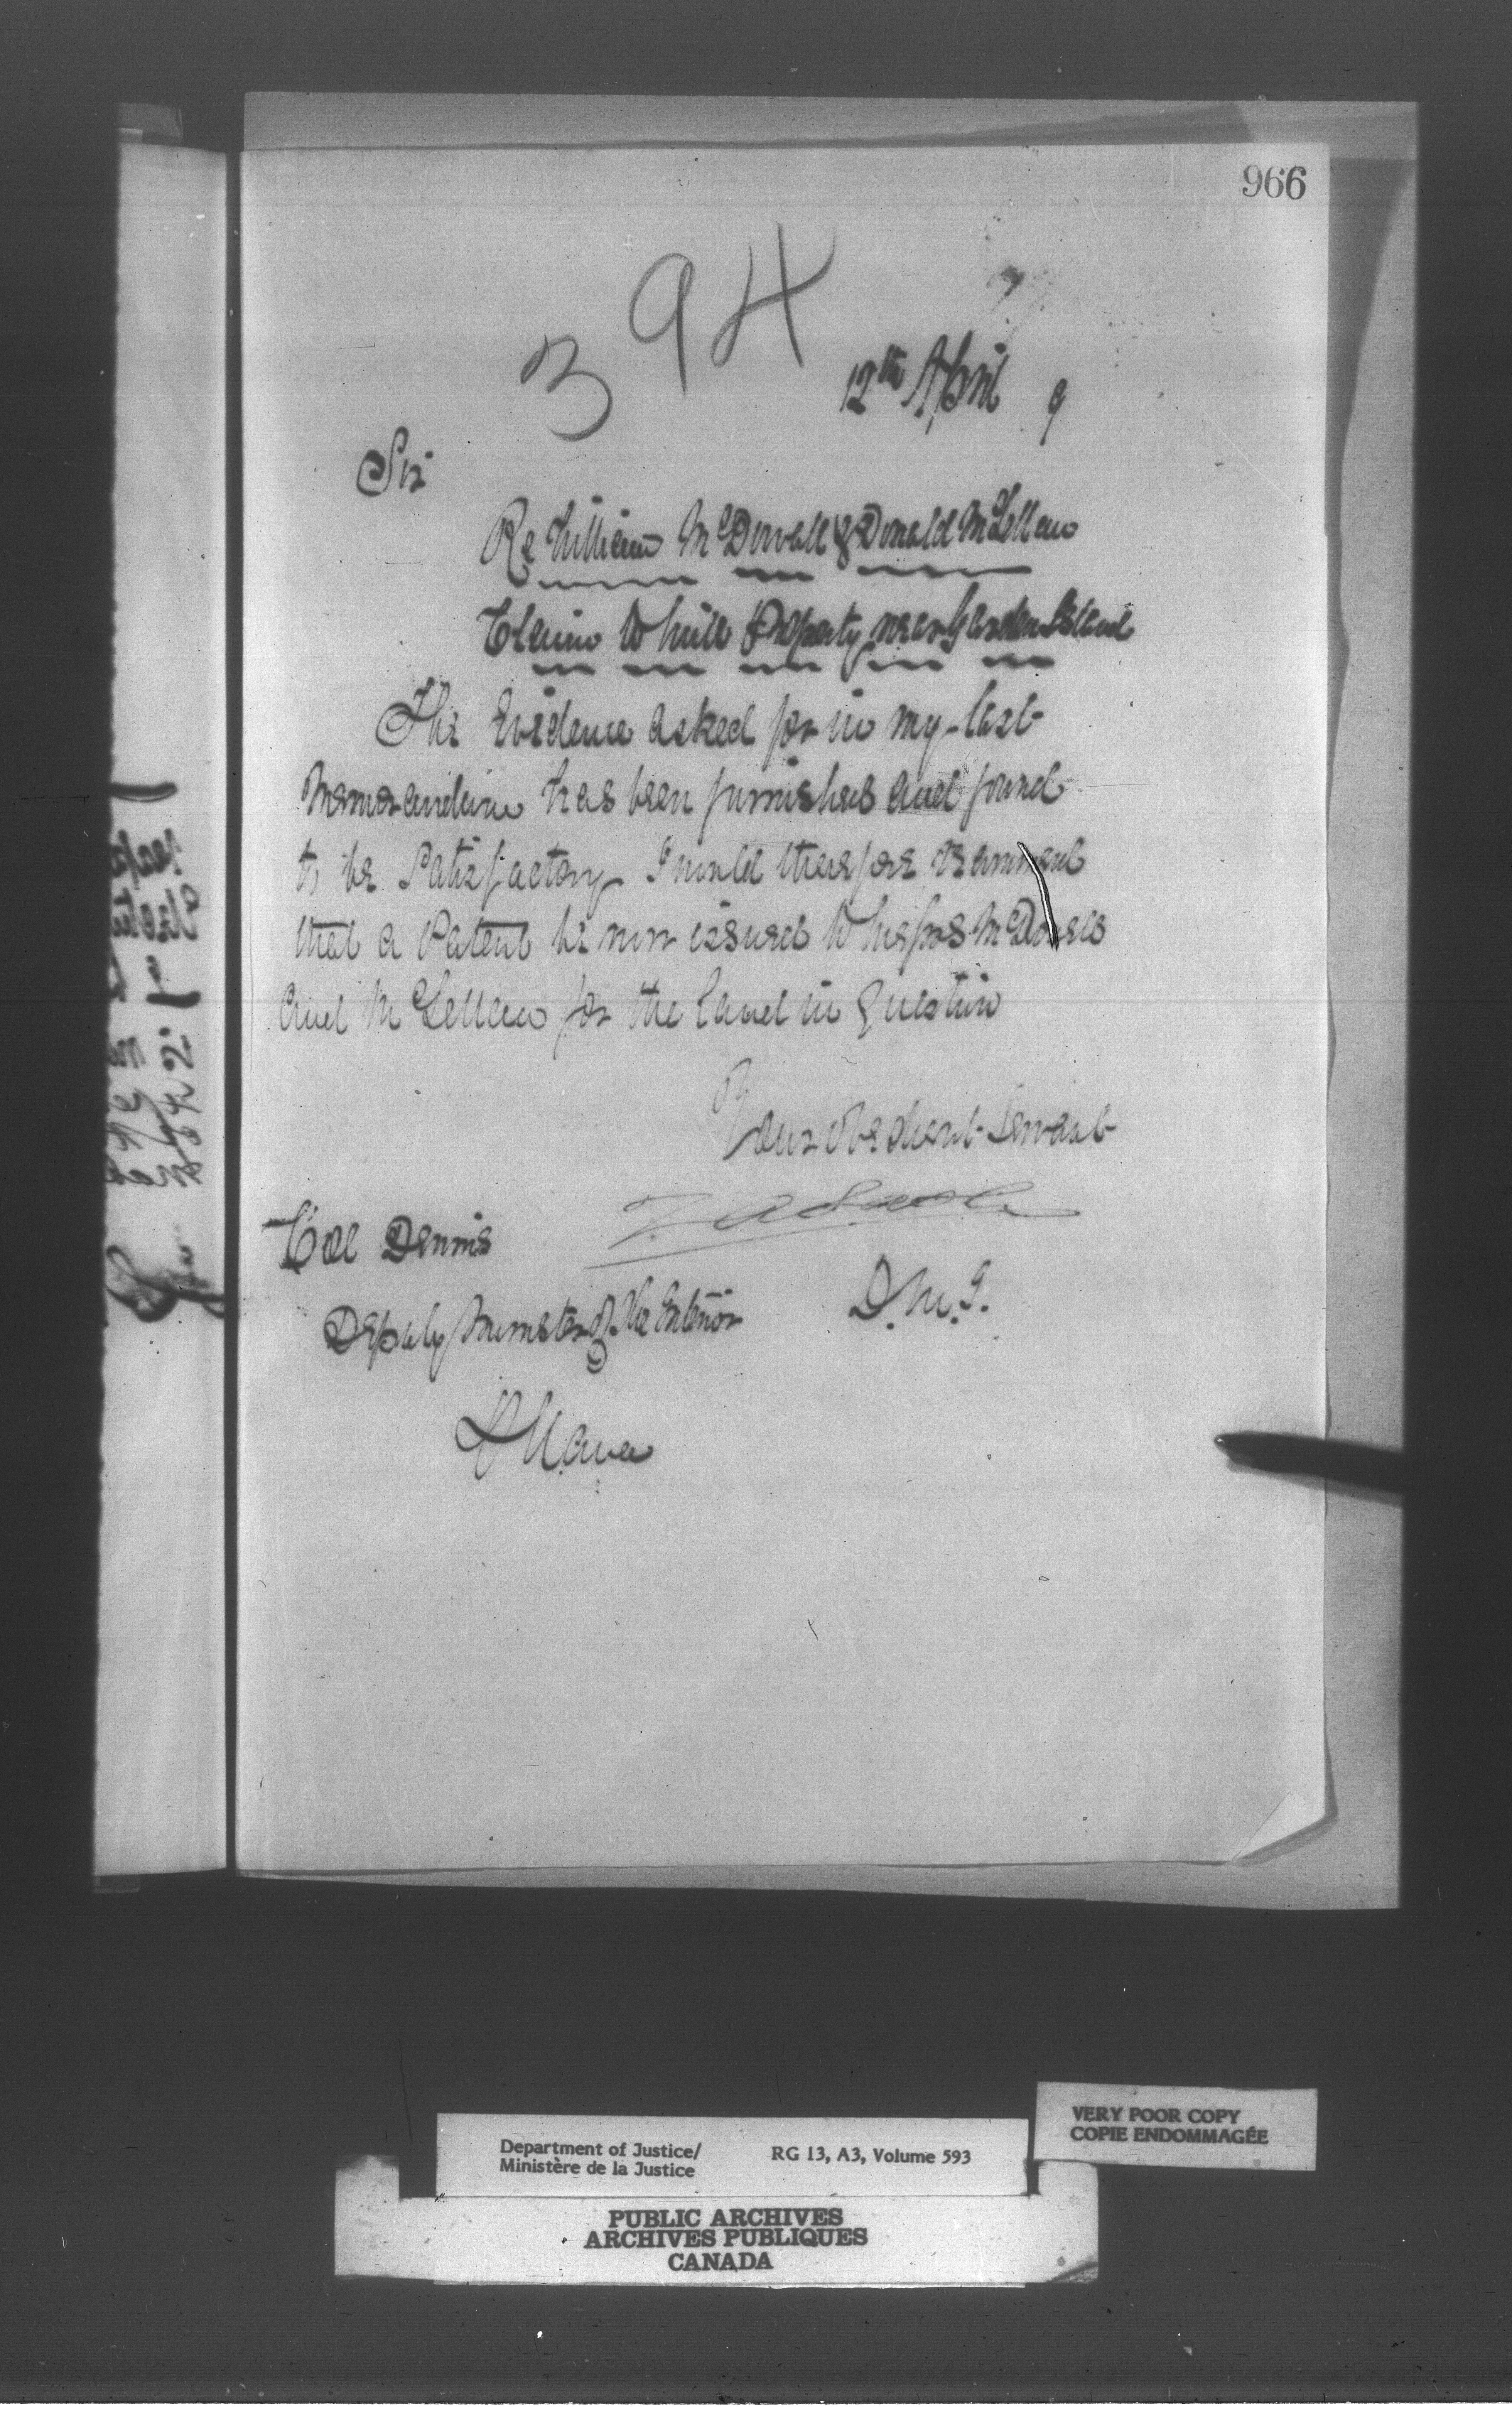 966
394
12th April 9
Sir
Re William McDowall & Donald McLellan
Claim to Mill Property near Garden Island
The Evidence asked for in my last
Memorandum has been furnished and found
to be Satisfactory I would therefore recommend
that a Patent be now issued to Messrs McDowall
and McLellan for the land in Question
Your Obedient Servant
Col Dennis
Deputy Minister of the Interior D.M.J.
Ottawa
VERY POOR COPY
COPIE ENDOMMAGÉE
Department of Justice/ RG 13, A3, Volume 593
Ministère de la Justice
PUBLIC ARCHIVES
ARCHIVES PUBLIQUES
CANADA